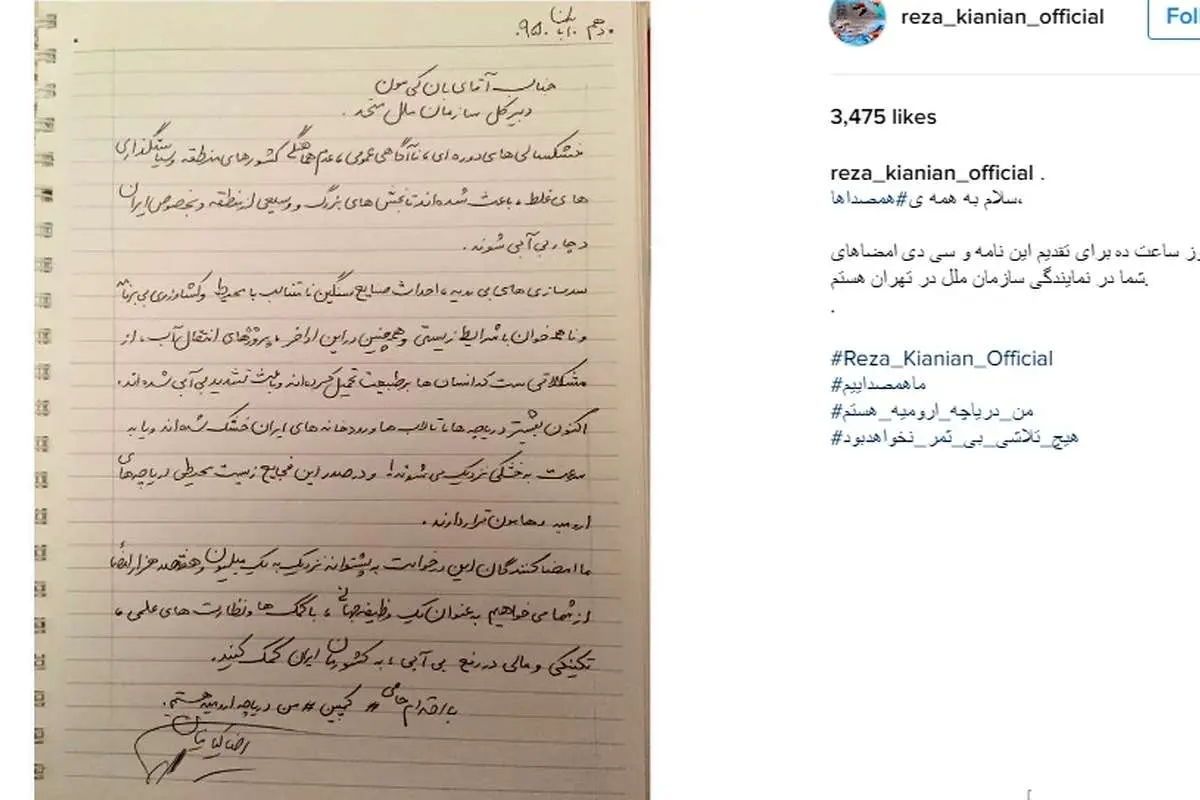 دهم آبان ۹۵.
جناب آقای بان کی مون
دبیر کل سازمان ملل متحد.
خشکسالی های دوره ای، ناآگاهی عمومی، عدم هماهنگی کشورهای منطقه و سیاستگذاری
های غلط، باعث شده اند تا بخش های بزرگ و وسیعی از منطقه و بخصوص ایران
دچار بی آبی شوند.
سدسازی های بی رویه، احداث صنایع سنگین نامتناسب با محیط و کشاورزی بی برنامه
و ناهمخوان با شرایط زیستی و همچنین در این اواخر، پروژهای انتقال آب، از
مشکلاتی ست که انسان ها بر طبیعت تحمیل کرده اند و باعث تشدید بی آبی شده اند.
اکنون بیشتر دریاچه ها تالاب ها و رودخانه های ایران خشک شده اند و یا به
سرعت به خشکی نزدیک می شوند! و در صدر این فجایع زیست محیطی دریاچه های
ارومیه و هامون قرار دارند.
ما امضا کنندگان این درخواست به پشتوانه نزدیک به یک میلیون و هفتصد هزار امضا
از شما می خواهیم به عنوان یک وظیفه جهانی، با کمک ها و نظارت های علمی،
تکنیکی و مالی در رفع بی آبی، به کشورمان ایران کمک کنید.
با احترام حامی # کمپین # من دریاچه ارومیه هستم.
رضا کیانیان
reza_kianian_official
Fol
3,475 likes
reza_kianian_official .
سلام به همه ی#همصداها،
وز ساعت ده برای تقدیم این نامه و سی دی امضاهای
شما در نمایندگی سازمان ملل در تهران هستم.
.
#Reza_Kianian_Official
#ماهمصداییم
#من_دریاچه_ارومیه_هستم
#هیچ_تلاشی_بی_ثمر_نخواهدبود